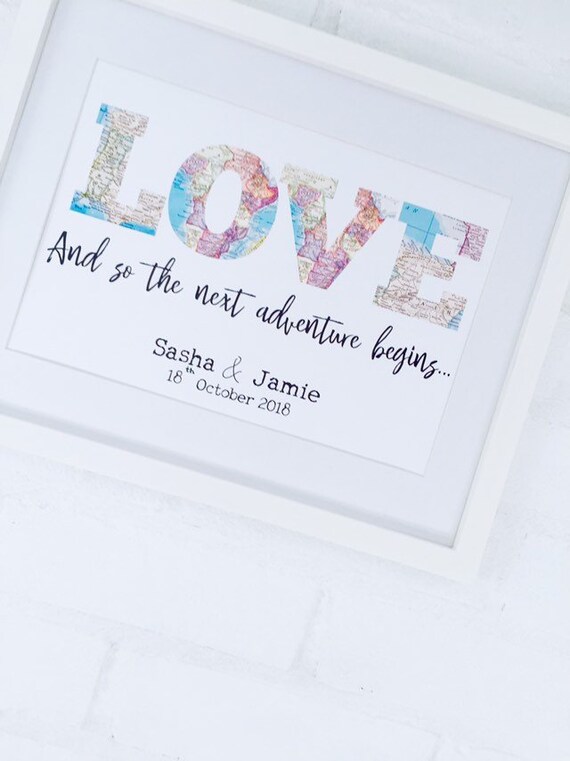 LOVE
And so the next adventure begins...
Sasha & Jamie
18th October 2018